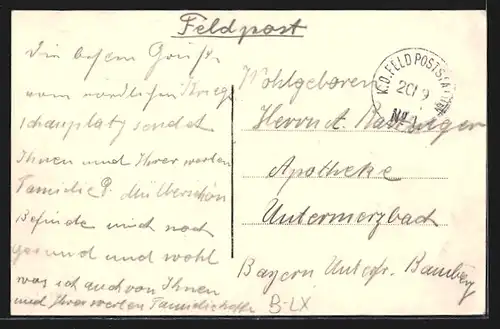 Feldpost
Die besten Grüße
vom nördlichen Kriegs
schauplatz sendet
Ihnen und Ihrer werten
Familie P. Müllerschön
Befinde mich noch
gesund und wohl
was ich auch von Ihnen
und Ihrer werten Familie hoffe
K.D. FELDPOSTSTATION
No 1
Wohlgeboren
Herrn A.
Apotheke
Untermerzbach
Bayern Unterfr. Bamberg
B-LX